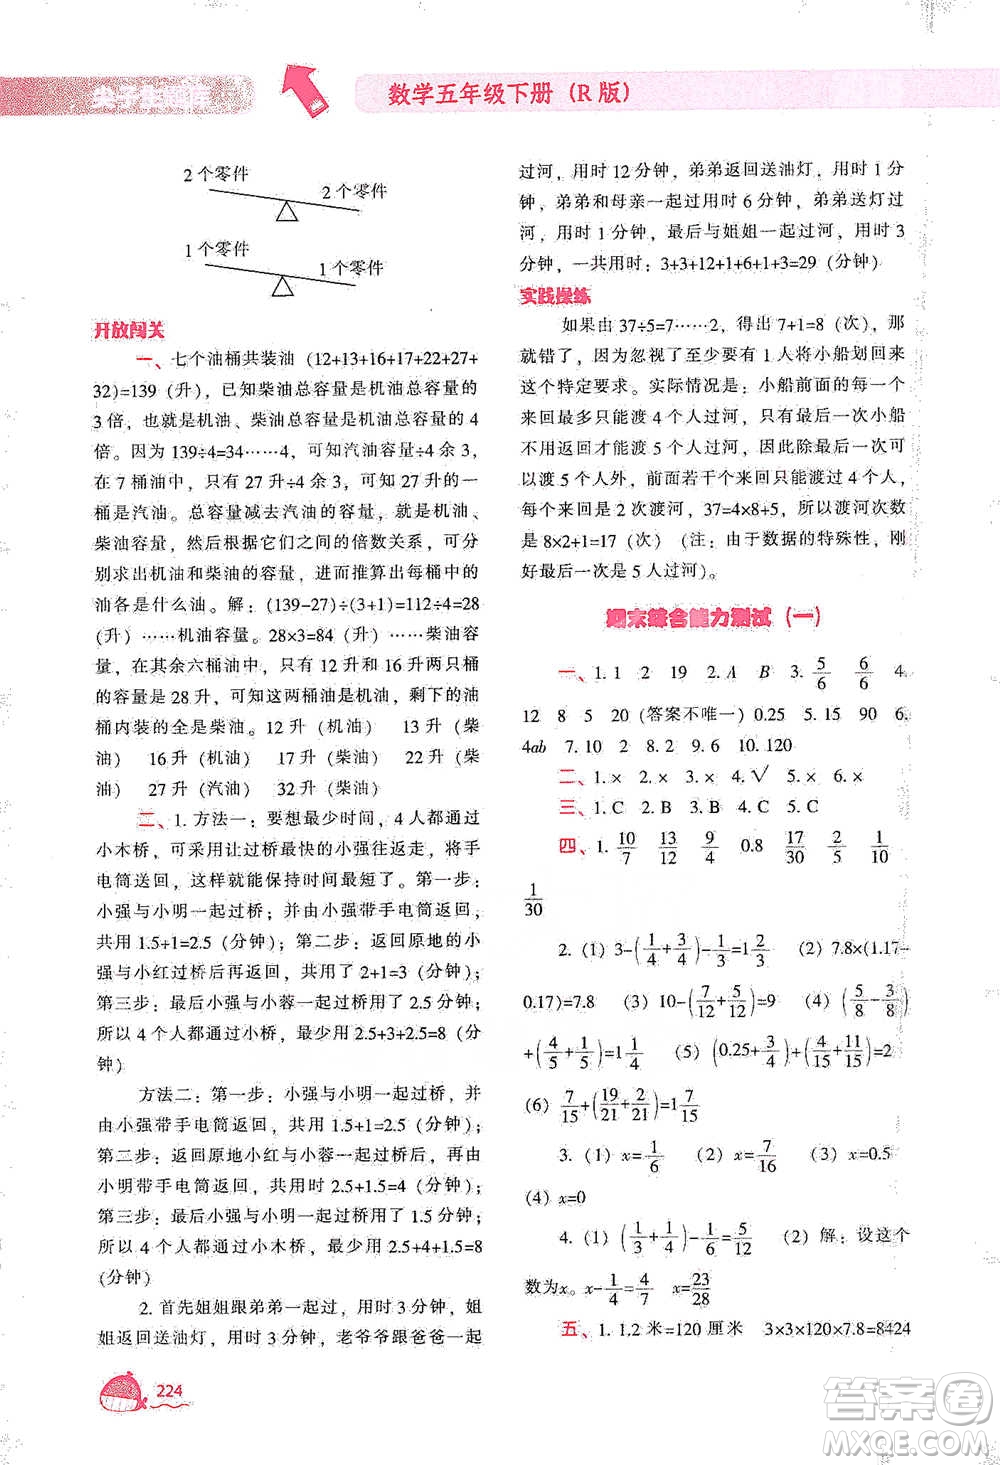 尖子生题库
数学五年级下册（R 版）
2 个零件
2 个零件
1 个零件
1 个零件
开放闯关
一、七个油桶共装油（12+13+16+17+22+27+
32)=139（升），已知柴油总容量是机油总容量的
3 倍，也就是机油、柴油总容量是机油总容量的 4
倍。因为 139÷4=34……4，可知汽油容量除以 4 余 3，
在 7 桶油中，只有 27 升÷4 余 3，可知 27 升的一
桶是汽油。总容量减去汽油的容量，是机油、
柴油的容量，然后根据它们之间的倍数关系，可分
别求出机油和柴油的容量，进而推算出每桶中的
油各是什么油。解：(139-27)÷(3+1)=112÷4=28
（升）……机油容量。28×3=84（升）……柴油容
量，在其余六桶油中，只有 12 升和 16 升两桶油
的容量是 28 升，可知这两桶油是机油，剩下的油
桶内装的全是柴油。12 升（机油） 13 升（柴
油） 16 升（机油） 17 升（柴油） 22 升（柴
油） 27 升（汽油） 32 升（柴油）
二、1. 方法一：要想最少时间，4 人都通过
小木桥，可采用让过桥最快的小强往返走，将手
电筒送回，这样就能保持时间最短了。第一步：
小强与小明一起过桥；并由小强带手电筒返回，
共用 1.5+1=2.5（分钟）；第二步：返回原地的小
强与小红过桥后再返回，共用时 2+1=3（分钟）；
第三步：最后小强与小蓉一起过桥用了 2.5 分钟，
所以 4 个人都通过小桥，最少用 2.5+3+2.5=8（分
钟）
方法二：第一步：小强与小明一起过桥；并
由小强带手电筒返回，共用 1.5+1=2.5（分钟）；
第二步：返回原地小红与小蓉一起过桥后，再由
小明带手电筒返回，共用时 2.5+1.5=4（分钟）；
第三步：最后小强与小明一起过桥用了 1.5 分钟，
所以 4 人都通过小木桥，最少用 2.5+4+1.5=8
（分钟）
2. 首先姐姐跟弟弟一起过，用时 3 分钟，姐
姐返回送油灯，用时 3 分钟，老爷爷跟爸爸一起
过河，用时 12 分钟，弟弟返回送油灯，用时 1 分
钟，弟弟和母亲一起过用时 6 分钟，弟弟送灯过
河，用时 1 分钟，最后与姐姐一起过河，用时 3
分钟，一共用时：3+3+12+1+6+1+3=29（分钟）
实践操练
如果由 37÷5=7……2，得出 7+1=8（次），那
就错了，因忽视了至少要有 1 人将小船划回来
这个特定要求。实际情况是：小船前面的每一个
来回最多只能渡 4 个人过河，只有最后一次小船
不用返回才能渡 5 个人过河，所以除最后一次可
以渡 5 个人外，前面若干个来回只能渡过 4 个人，
每个来回是 2 次渡河，37=4×8+5，所以渡河次数
是 8×2+1=17（次）（注：由于数据的特殊性，刚
好最后一次是 5 人过河）。
期末综合能力测试（一）
一、1. 1 2 19 2. A B 3. 5/6 6/6 4.
12 8 5 20（答案不唯一）0.25 5. 15 90 6.
4ab 7. 10 2 8. 2 9. 6 10. 120
二、1. × 2. × 3. × 4. √ 5. × 6. ×
三、1. C 2. B 3. B 4. C 5. C
四、1. 10/7 13/12 9/4 0.8 17/30 5/2 1/10
1/30
2. (1) 3-(1/4+3/4)-1/3=1 2/3 (2) 7.8×(1.17-
0.17)=7.8 (3) 10-(7/12+5/12)=9 (4) (5/8-3/8)
+(4/5+1/5)=1 1/4 (5) (0.25+3/4)+(4/15+11/15)=2
(6) 7/15+(19/21+2/21)=1 7/15
3. (1) x=1/6 (2) x=7/16 (3) x=0.5
(4) x=0
4. (1) (1/3+1/4)-1/6=5/12 (2) 解：设这个
数为 x。x-1/4=4/7 x=23/28
五、1. 1.2 米=120 厘米 3×3×120×7.8=8424
224
答案圈
MXQE.COM